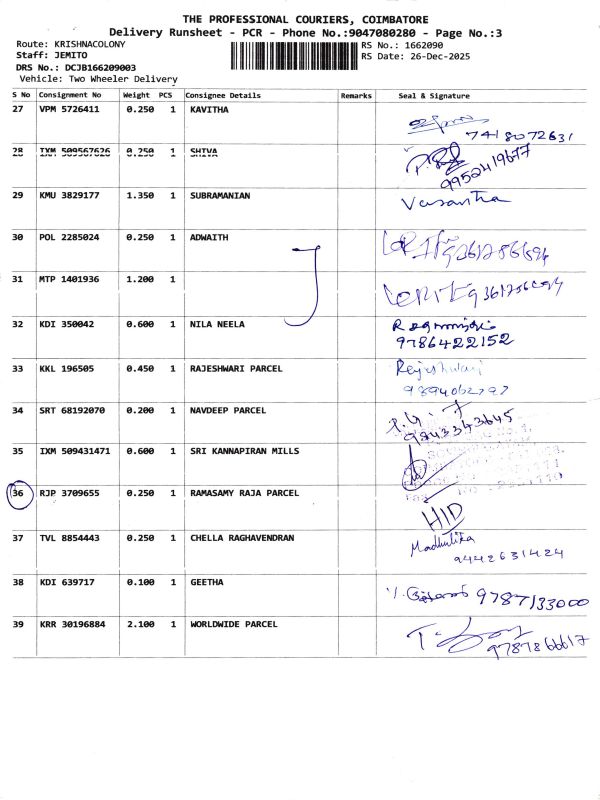 THE PROFESSIONAL COURIERS, COIMBATORE
Delivery Runsheet - PCR - Phone No.:9047080280 - Page No.:3
Route: KRISHNACOLONY
Staff: JEMITO
DRS No.: DCJB166209003
Vehicle: Two Wheeler Delivery
RS No.: 1662090
RS Date: 26-Dec-2025
S No Consignment No Weight PCS Consignee Details Remarks Seal & Signature
27 VPM 5726411 0.250 1 KAVITHA
7418072631
28 IXM 509567626 0.250 1 SHIVA
9952419677
29 KMU 3829177 1.350 1 SUBRAMANIAN Vasantha
30 POL 2285024 0.250 1 ADWAITH
31 MTP 1401936 1.200 1
32 KDI 350042 0.600 1 NILA NEELA
9786422152
33 KKL 196505 0.450 1 RAJESHWARI PARCEL Rajeshwari
9894062797
34 SRT 68192070 0.200 1 NAVDEEP PARCEL
9843343645
35 IXM 509431471 0.600 1 SRI KANNAPIRAN MILLS
36 RJP 3709655 0.250 1 RAMASAMY RAJA PARCEL
HID
37 TVL 8854443 0.250 1 CHELLA RAGHAVENDRAN Madhulika
9442631424
38 KDI 639717 0.100 1 GEETHA 9787133000
39 KRR 30196884 2.100 1 WORLDWIDE PARCEL
9787866617